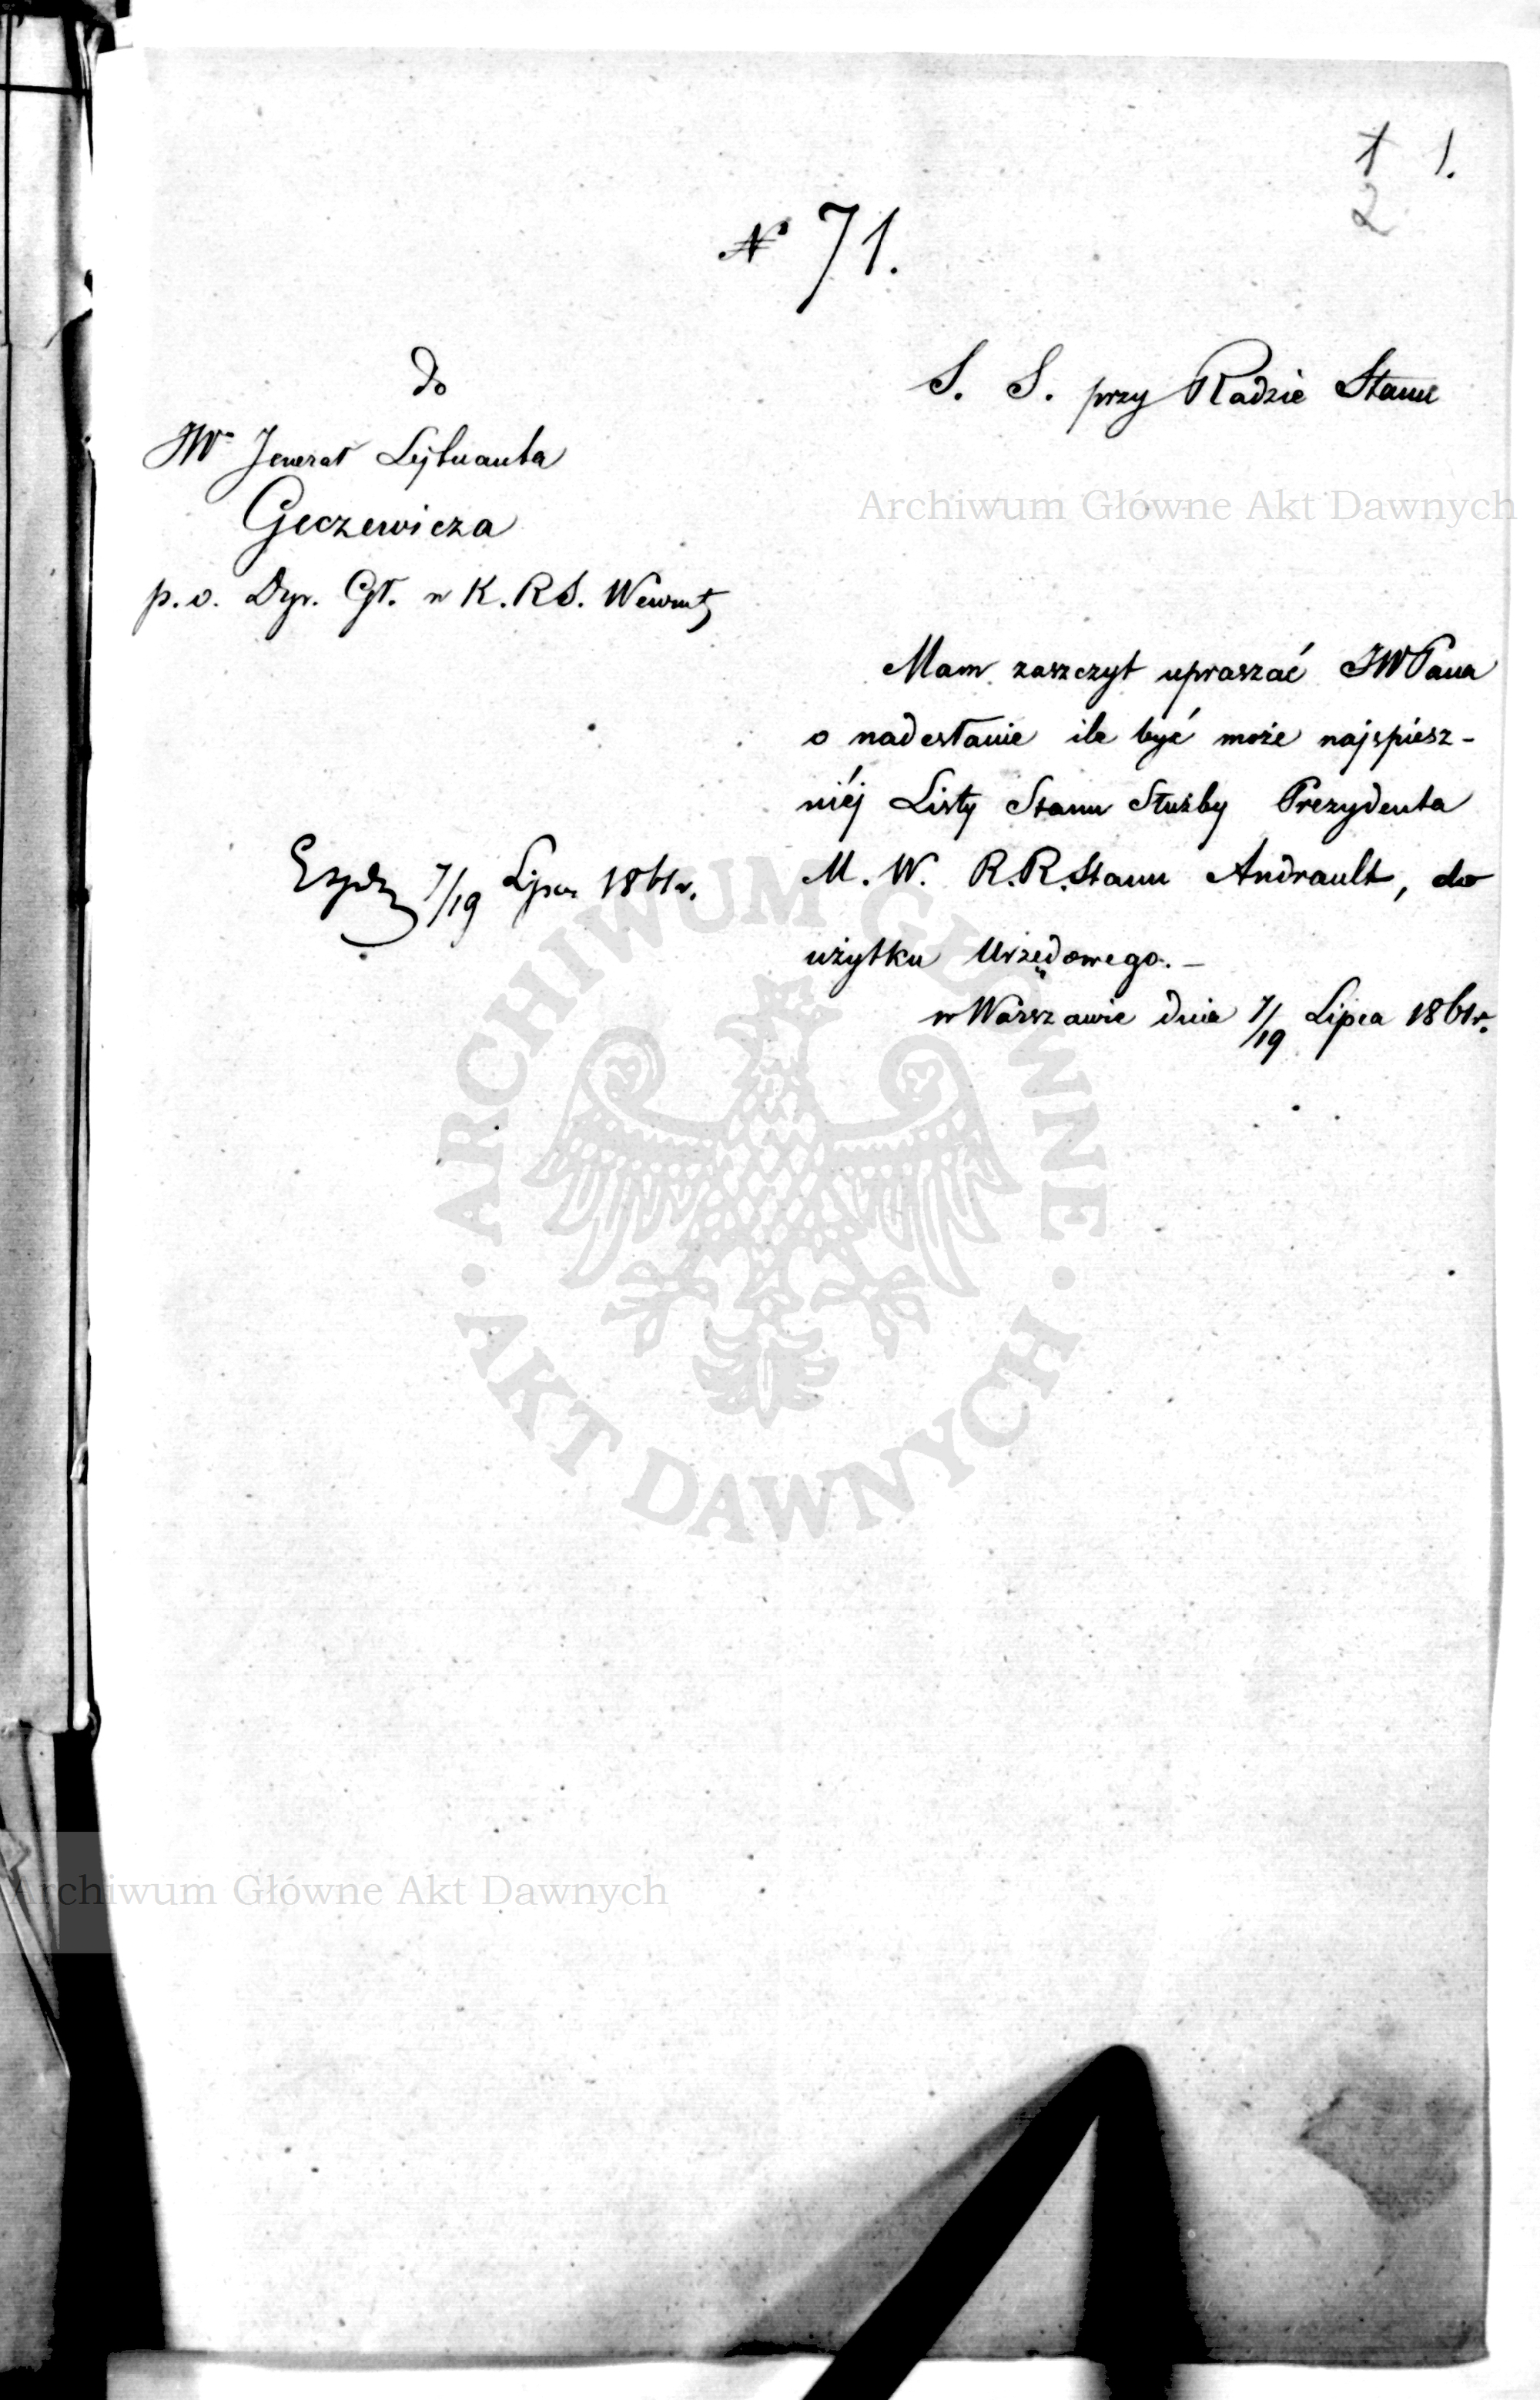 1 1.
2
N° 71.
do
JW° Jenerał Lejtnanta
Geczewicza
p.o. Dyr. Gł. w K.R.S. Wewnętz
S. S. przy Radzie Stanu
Archiwum Główne Akt Dawnych
Mam zaszczyt upraszać JWPana
o nadesłanie ile być może najspiesz-
niéj Listy Stanu Służby Prezydenta
M. W. R.R.Stanu Andrault, do
użytku Urzędowego. –
w Warszawie dnia 7/19 Lipca 1861r.
7/19 Lipca 1861r.
ARCHIWUM GŁÓWNE
· AKT DAWNYCH ·
Archiwum Główne Akt Dawnych